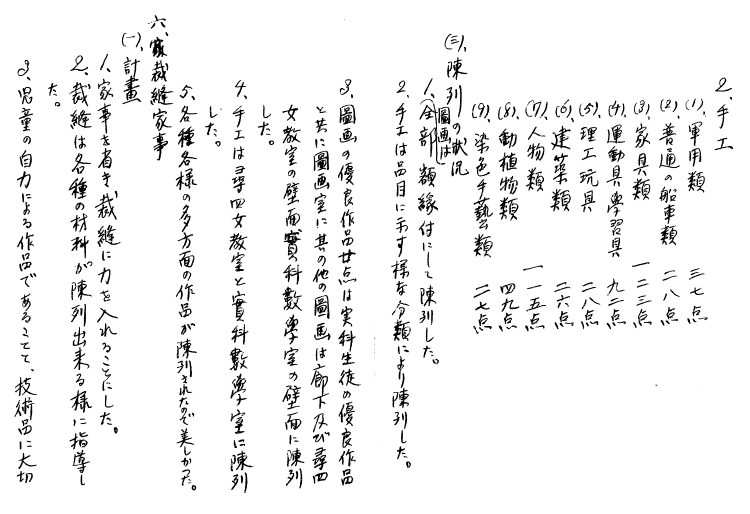 2、手工
(1)、軍用類 三七点
(2)、普通の船車類 二八点
(3)、家具類 一二三点
(4)、運動具學習具 九二点
(5)、理工玩具 二八点
(6)、建築類 二六点
(7)、人物類 一一五点
(8)、動植物類 四九点
(9)、染色手藝類 二七点
(三)、陳列の状況
1、圖画は全部額縁付にして陳列した。
2、手工は品目に示す様な分類により陳列した。
3、圖画の優良作品廿点は実科生徒の優良作品
と共に圖画室に其の他の圖画は廊下及び尋四
女教室の壁面實科數學室の壁面に陳列
した。
4、手工は尋四女教室と實科數學室に陳列
した。
5、各種各様の多方面の作品が陳列されたので美しかった。
六、裁縫家事
(一)、計畫
1、家事を省き裁縫に力を入れることにした。
2、裁縫は各種の材料が陳列出来る様に指導し
た。
3、児童の自力による作品であることと、技術品に大切